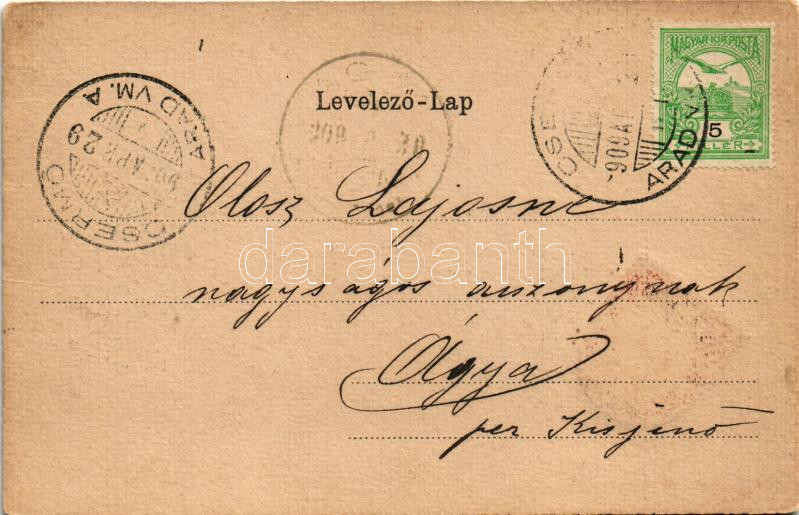 MAGYAR KIR. POSTA
5
Levelező-Lap
CSERMŐ
ARAD VM. A
909 APR 29
CSE
ARAD V
909 A
Olosz Lajosné
darabanth
nagyságos asszonynak
Ágya
per Kisjenő